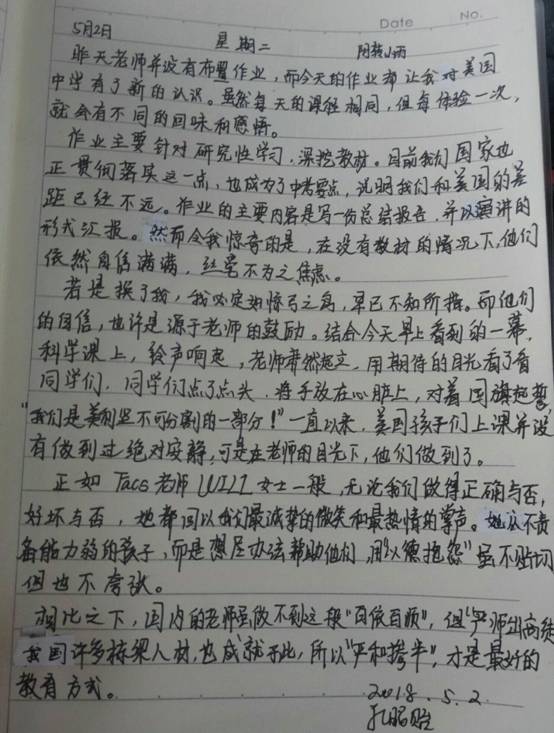 Date No.
5月2日 星期二 阴转小雨
昨天老师并没有布置作业,而今天的作业却让我对美国
中学有了新的认识。虽然每天的课程相同,但每体验一次,
就会有不同的回味和感悟。
作业主要针对研究性学习,深挖教材。目前我们国家也
正贯彻落实这一点,也成为了中考要点,说明我们和美国的差
距已经不远。作业的主要内容是写一份总结报告,并以演讲的
形式汇报。然而令我惊奇的是,在没有教材的情况下,他们
依然自信满满,丝毫不为之焦虑。
若是换了我,我必定如惊弓之鸟,早已不知所措。而他们
的自信,也许是源于老师的鼓励。结合今天早上看到的一幕,
科学课上,铃声响起,老师肃然起立,用期待的目光看了看
同学们,同学们点了点头,将手放在心脏上,对着国旗起誓
"我们是美利坚不可分割的一部分!"一直以来,美国孩子们上课并没
有做到过绝对安静,可是在老师的目光下,他们做到了。
正如Taco老师WILL女士一般,无论我们做得正确与否,
好坏与否,她都回以我们最诚挚的微笑和最热情的掌声。她从不责
备能力弱的孩子,而是想尽办法帮助他们,用"以德抱怨"虽不贴切
但也不夸张。
相比之下,国内的老师虽做不到这般"百依百顺",但"严师出高徒
我国许多栋梁人材,也成就于此,所以"严和掺半",才是最好的
教育方式。
2018.5.2
孔昭